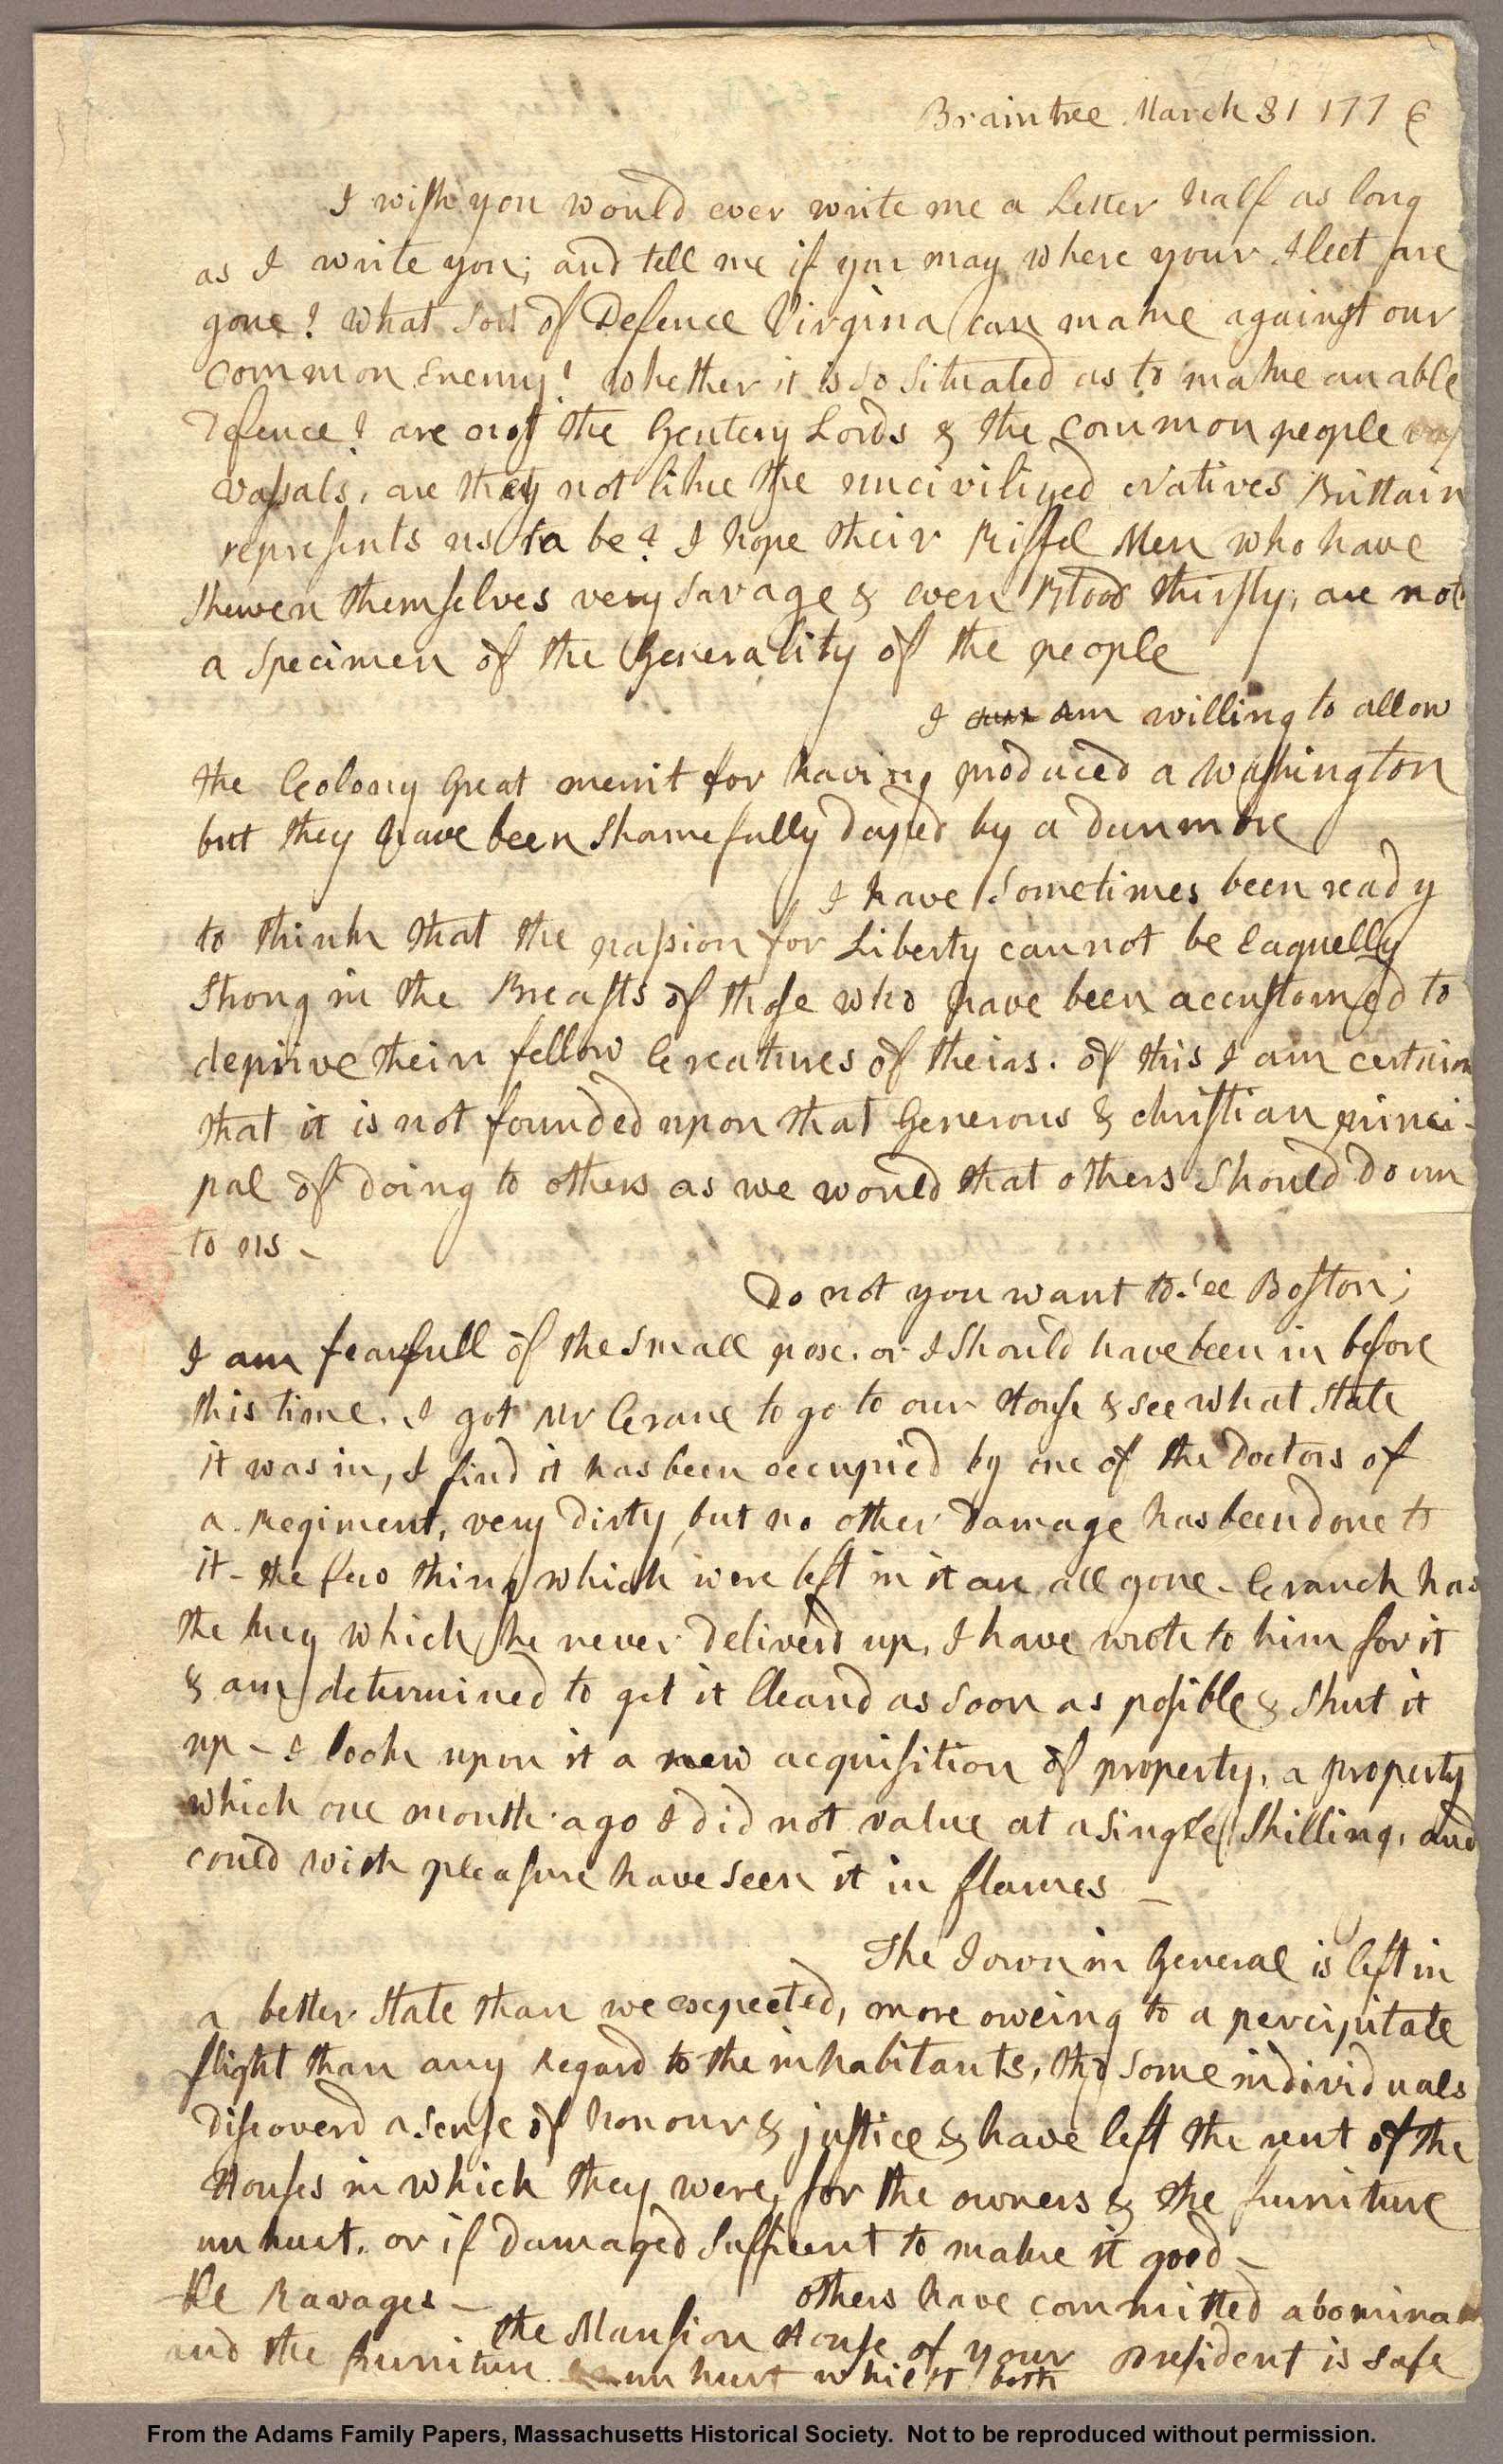 Braintree March 31 1776
I wish you would ever write me a Letter half as long
as I write you; and tell me if you may where your Fleet are
gone? what sort of Defence Virginia can make against our
common Enemy? whether it is so situated as to make an able
Defence? are not the Gentery Lords & the common people
vassals, are they not like the uncivilized Natives Brittain
represents us to be? I hope their Riffel Men who have
shewen themselves very savage & even Blood thirsty; are not
a specimen of the Generality of the people
I am willing to allow
the Colony great merrit for having produced a Washington
but they have been shamefully duped by a Dunmore
I have sometimes been ready
to think that the passion for Liberty cannot be Eaquelly
strong in the Breasts of those who have been accustomed to
deprive their fellow Creatures of theirs. of this I am certain
that it is not founded upon that Generous & christian princi-
pal of doing to others as we would that others should do un
to us -
Do not you want to see Boston;
I am fearfull of the small pox. or I should have been in before
this time. I got Mr Crane to go to our House & see what state
it was in, I find it has been occupied by one of the Doctors of
a Regiment, very dirty, but no other damage has been done to
it - the few things which were left in it are all gone - Cranch has
the key which he never deliverd up, I have wrote to him for it
& am determined to get it cleand as soon as possible & shut it
up - I look upon it a new acquisition of property, a property
which one month ago I did not value at a single Shilling, and
could with pleasure have seen it in flames -
The Town in General is left in
a better state than we expected, more oweing to a percipitate
flight than any Regard to the inhabitants, tho some individuals
discoverd a sense of honour & justice & have left the rent of the
Houses in which they were, for the owners & the furniture
unhurt. or if damaged sufficent to make it good -
others have committed abomina
ble Ravages -
the Mansion House of your President is safe
and the furniture unhurt whilst both
From the Adams Family Papers, Massachusetts Historical Society. Not to be reproduced without permission.